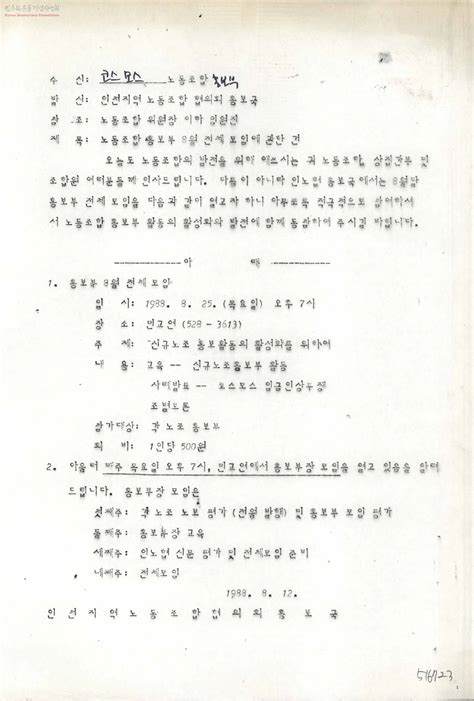 민주화운동기념사업회
Korea Democracy Foundation
수 신: 코스모스 노동조합 홍보부
발 신: 인천지역 노동조합 협의회 홍보국
참 조: 노동조합 위원장 이하 임원진
제 목: 노동조합 홍보부 8월 전체 모임에 관한 건
오늘도 노동조합의 발전을 위해 애쓰시는 귀 노동조합 상집간부 및
조합원 여러분들께 인사드립니다. 다름이 아니라 인노협 홍보국에서는 8월달
홍보부 전체 모임을 다음과 같이 열고자 하니 아무쪼록 적극적으로 참여하셔
서 노동조합 홍보부 활동의 활성화와 발전에 함께 동참하여 주시길 바랍니다.
아 래
1. 홍보부 8월 전체모임
일 시: 1988. 8. 25. (목요일) 오후 7시
장 소: 민교연 (528 - 3613)
주 제: 신규노조 홍보활동의 활성화를 위하여
내 용: 교육 -- 신규노조홍보부 활동
사례발표 -- 코스모스 임금인상투쟁
조별토론
참가대상: 각 노조 홍보부
회 비: 1인당 500원
2. 아울러 매주 목요일 오후 7시, 민교연에서 홍보부장 모임을 열고 있음을 알려
드립니다. 홍보부장 모임은
첫째주: 각 노조 노보 평가 (전월 발행) 및 홍보부 모임 평가
둘째주: 홍보부장 교육
세째주: 인노협 신문 평가 및 전체모임 준비
네째주: 전체모임
1988. 8. 12.
인 천 지 역 노 동 조 합 협 의 회 홍 보 국